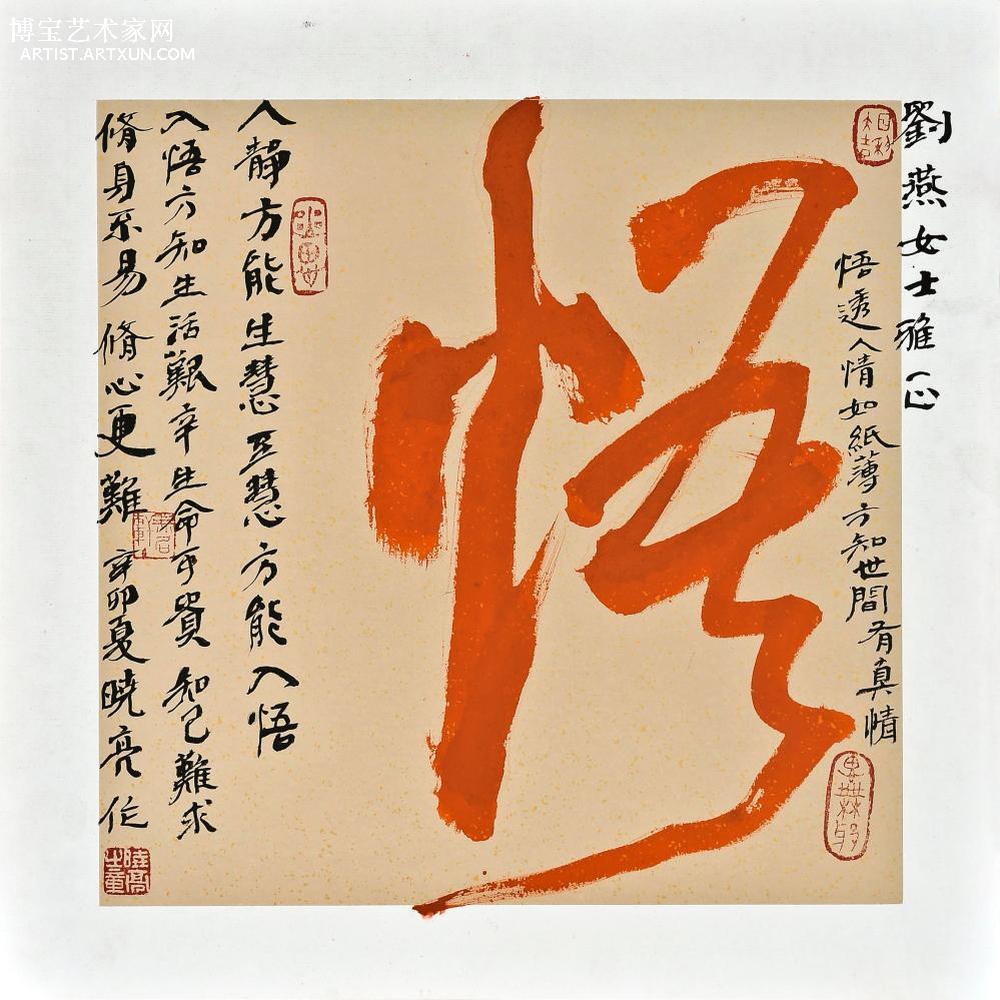 博宝艺术家网
ARTIST.ARTXUN.COM
劉燕女士雅正
悟透人情如紙薄方知世間有真情
悟
人靜方能生慧至慧方能入悟
入悟方知生活艱辛生命可貴知己難求
脩身不易脩心更難辛卯夏曉亮作